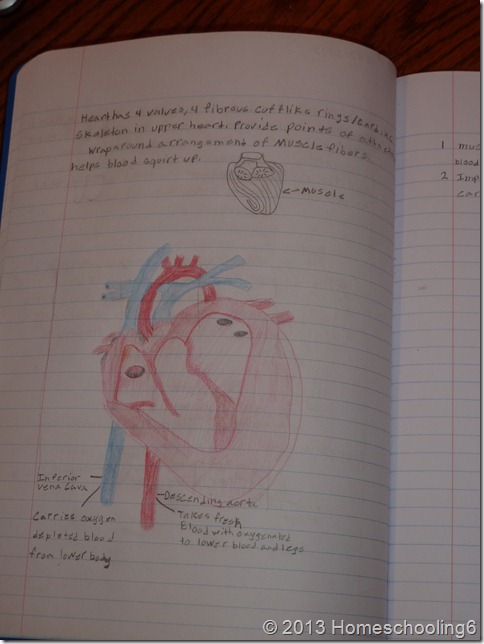 Heart has 4 valves, 4 fibrous cufflike rings/cardiac
skaleton in upper heart. Provide points of attach
wraparound arrangement of Muscle fibers
helps blood squirt up.
←Muscle
Inferior
vena cava
Carries oxygen
depleted blood
from lower body
Descending aorta
Takes fresh
Blood with oxygenated
to lower blood and legs
1 mus
blood
2 Imp
car
© 2013 Homeschooling6